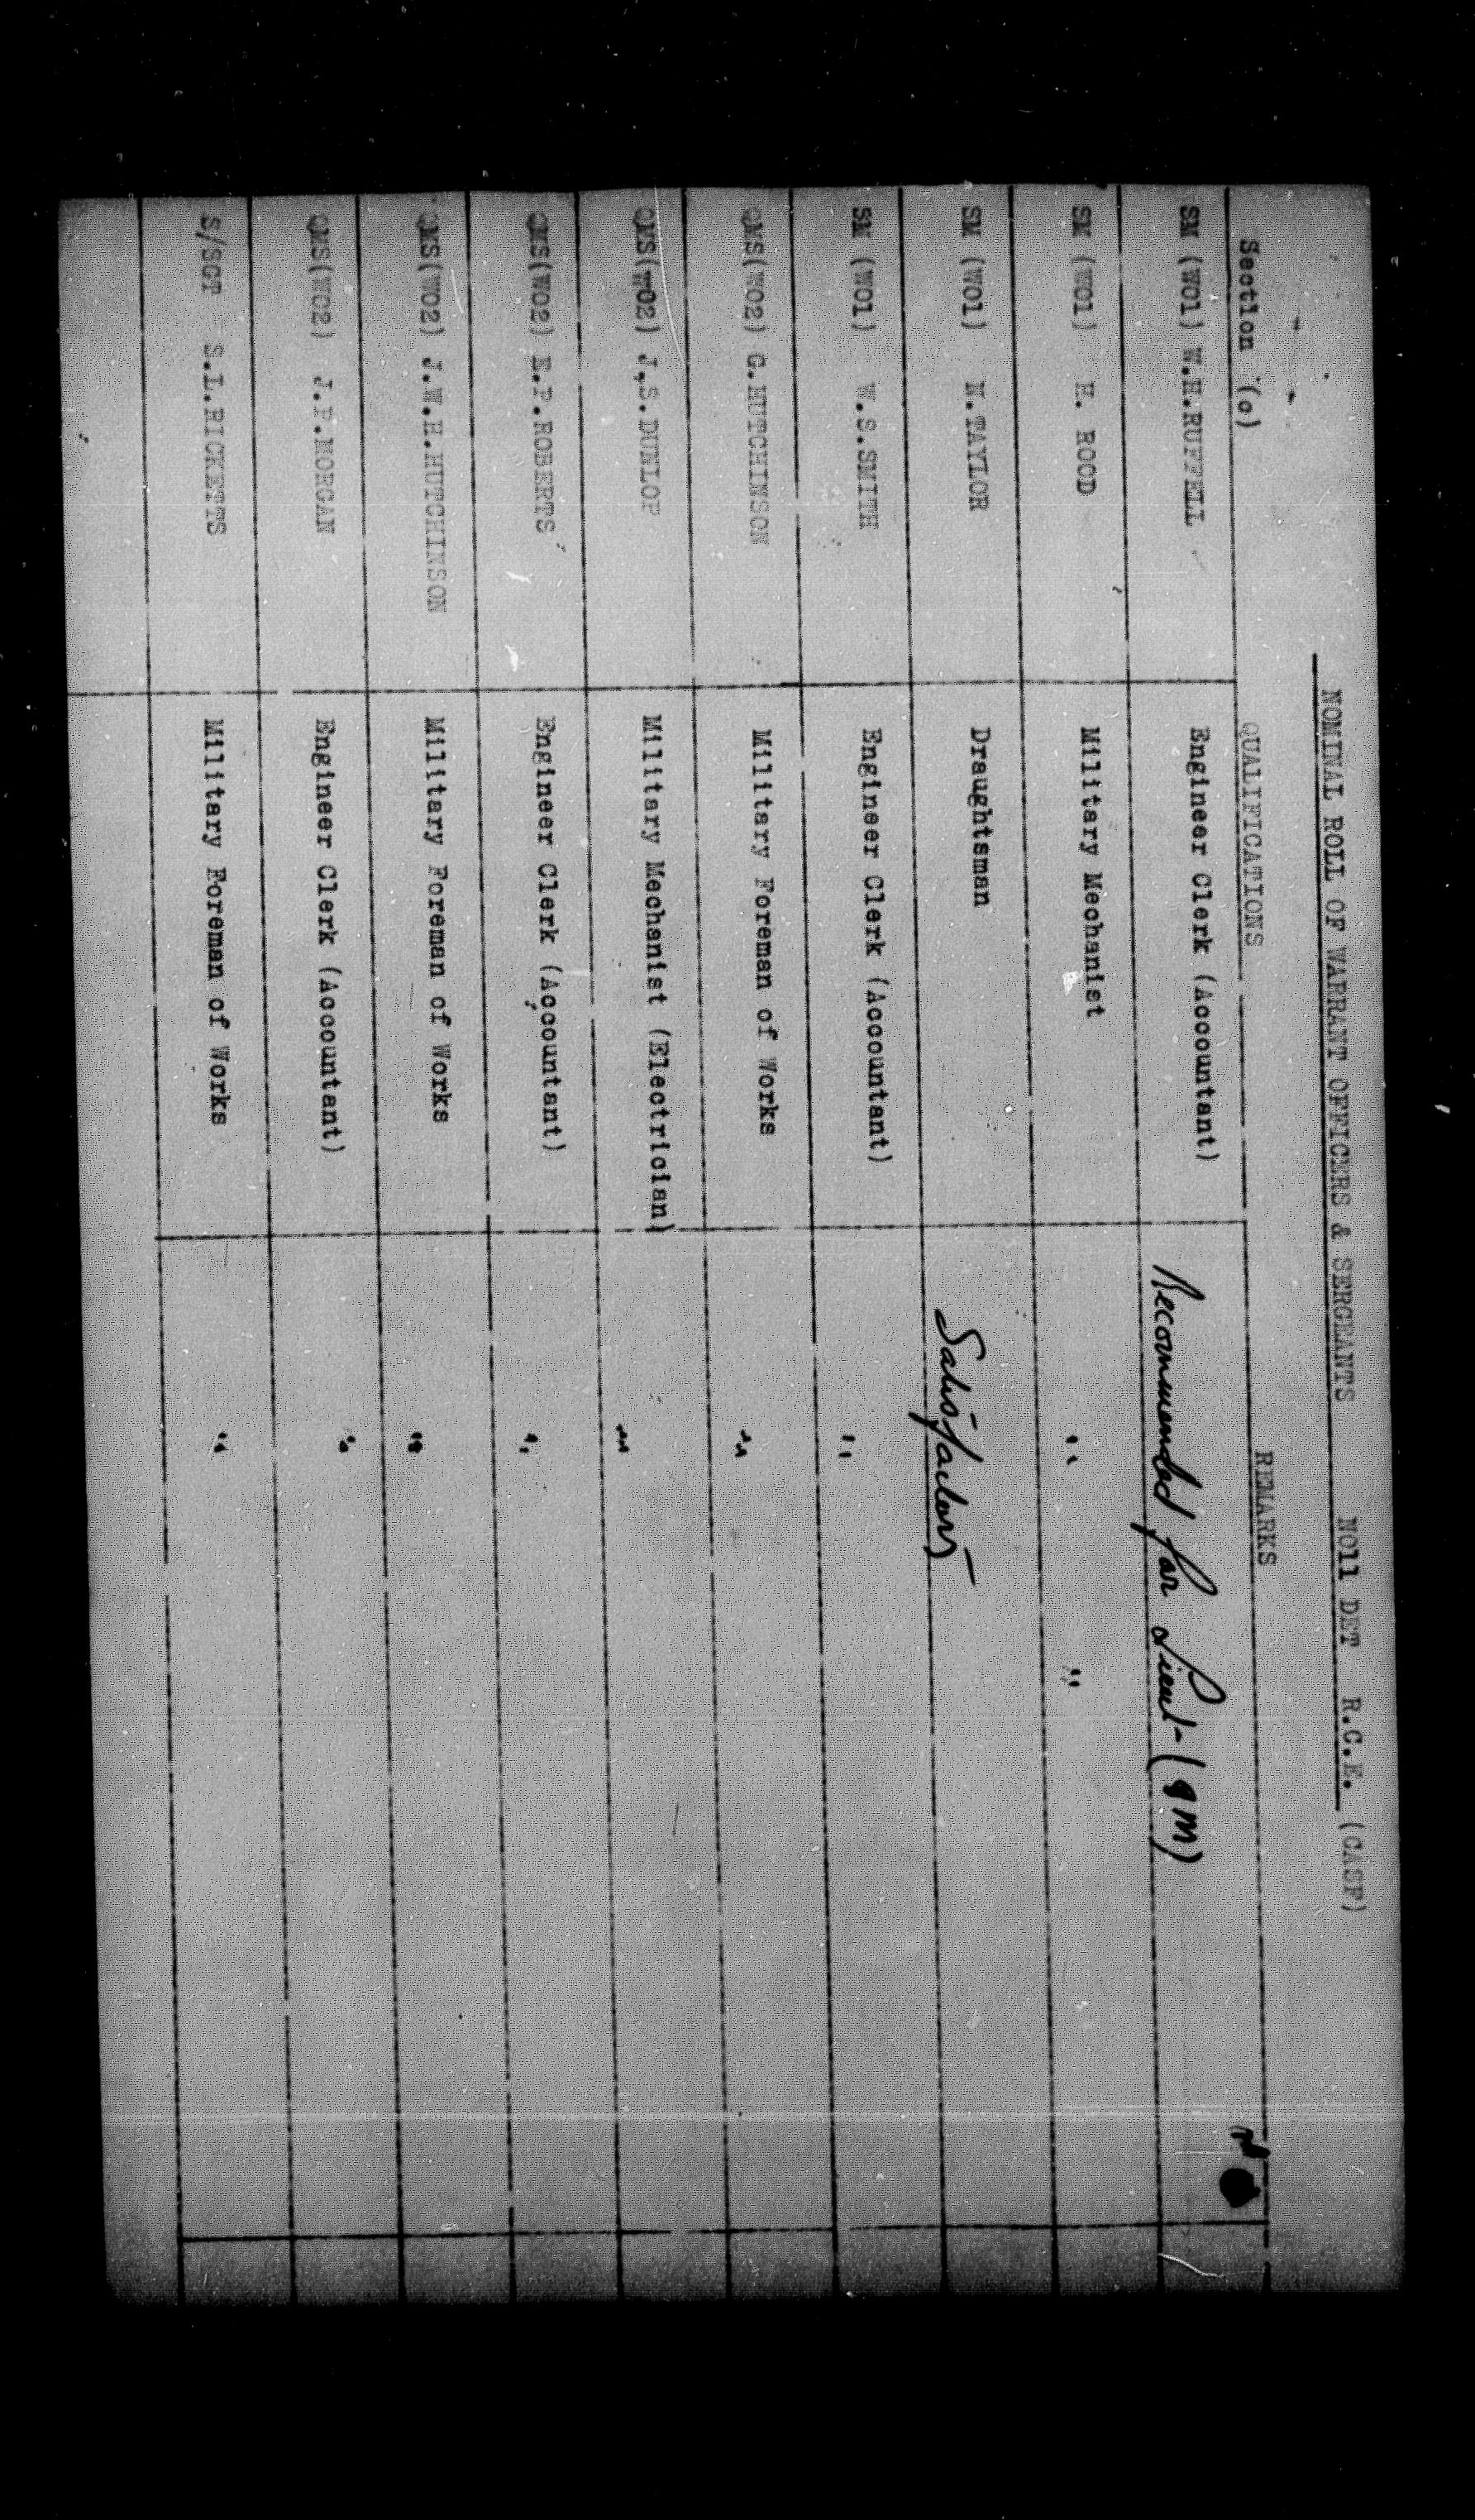 NOMINAL ROLL OF WARRANT OFFICERS & SERGEANTS NO11 DET R.C.E. (CASF)
Section (c) QUALIFICATIONS REMARKS
SM (WO1) W.H.RUFFELL Engineer Clerk (Accountant) Recommended for Lieut-(QM)
SM (WO1) H. ROOD Military Mechanist " "
SM (WO1) N.TAYLOR Draughtsman Satisfactory
SM (WO1) W.S.SMITH Engineer Clerk (Accountant) "
QMS(WO2) G.HUTCHINSON Military Foreman of Works "
QMS(WO2) J.S.DUNLOP Military Mechanist (Electrician) "
QMS(WO2) E.P.ROBERTS Engineer Clerk (Accountant) "
QMS(WO2) J.W.H.HUTCHINSON Military Foreman of Works "
QMS(WO2) J.P.MORGAN Engineer Clerk (Accountant) "
S/SGT S.L.RICKETTS Military Foreman of Works "